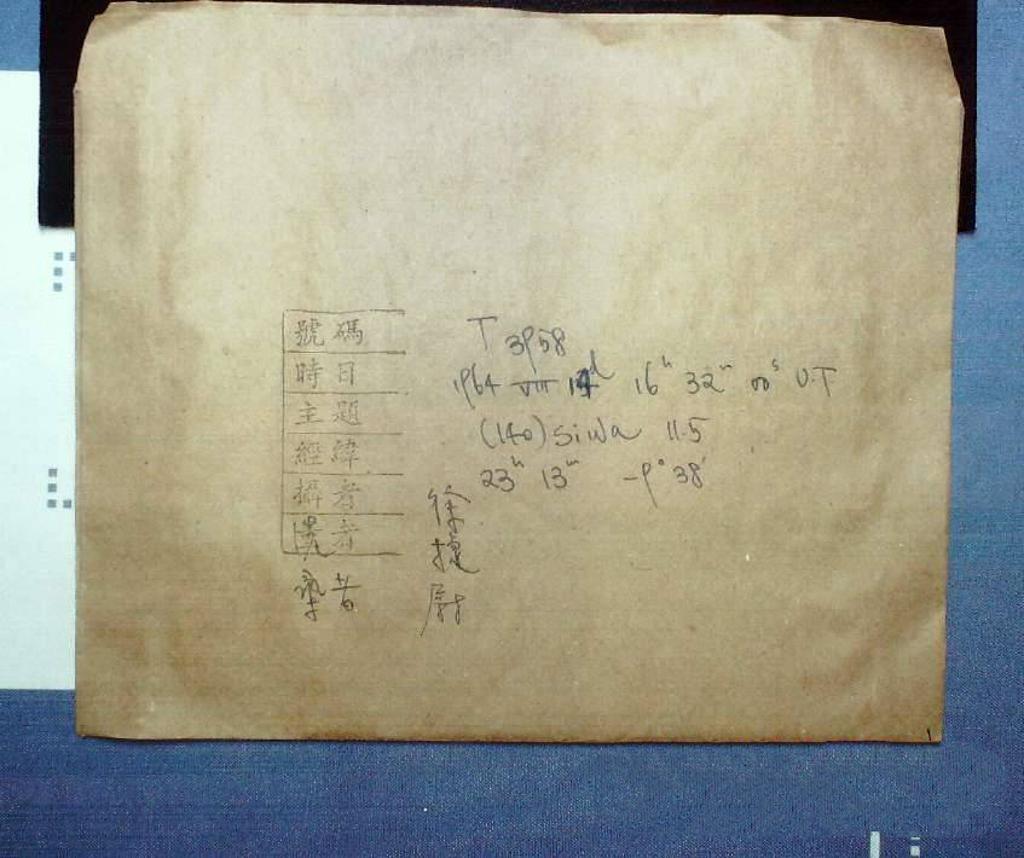 號碼 T 3958
時日 1964 VIII 14d 16h 32m 00s U.T
主題 (140) Siwa 11.5
經緯 23h 13m -9° 38'
攝者 徐
者
者